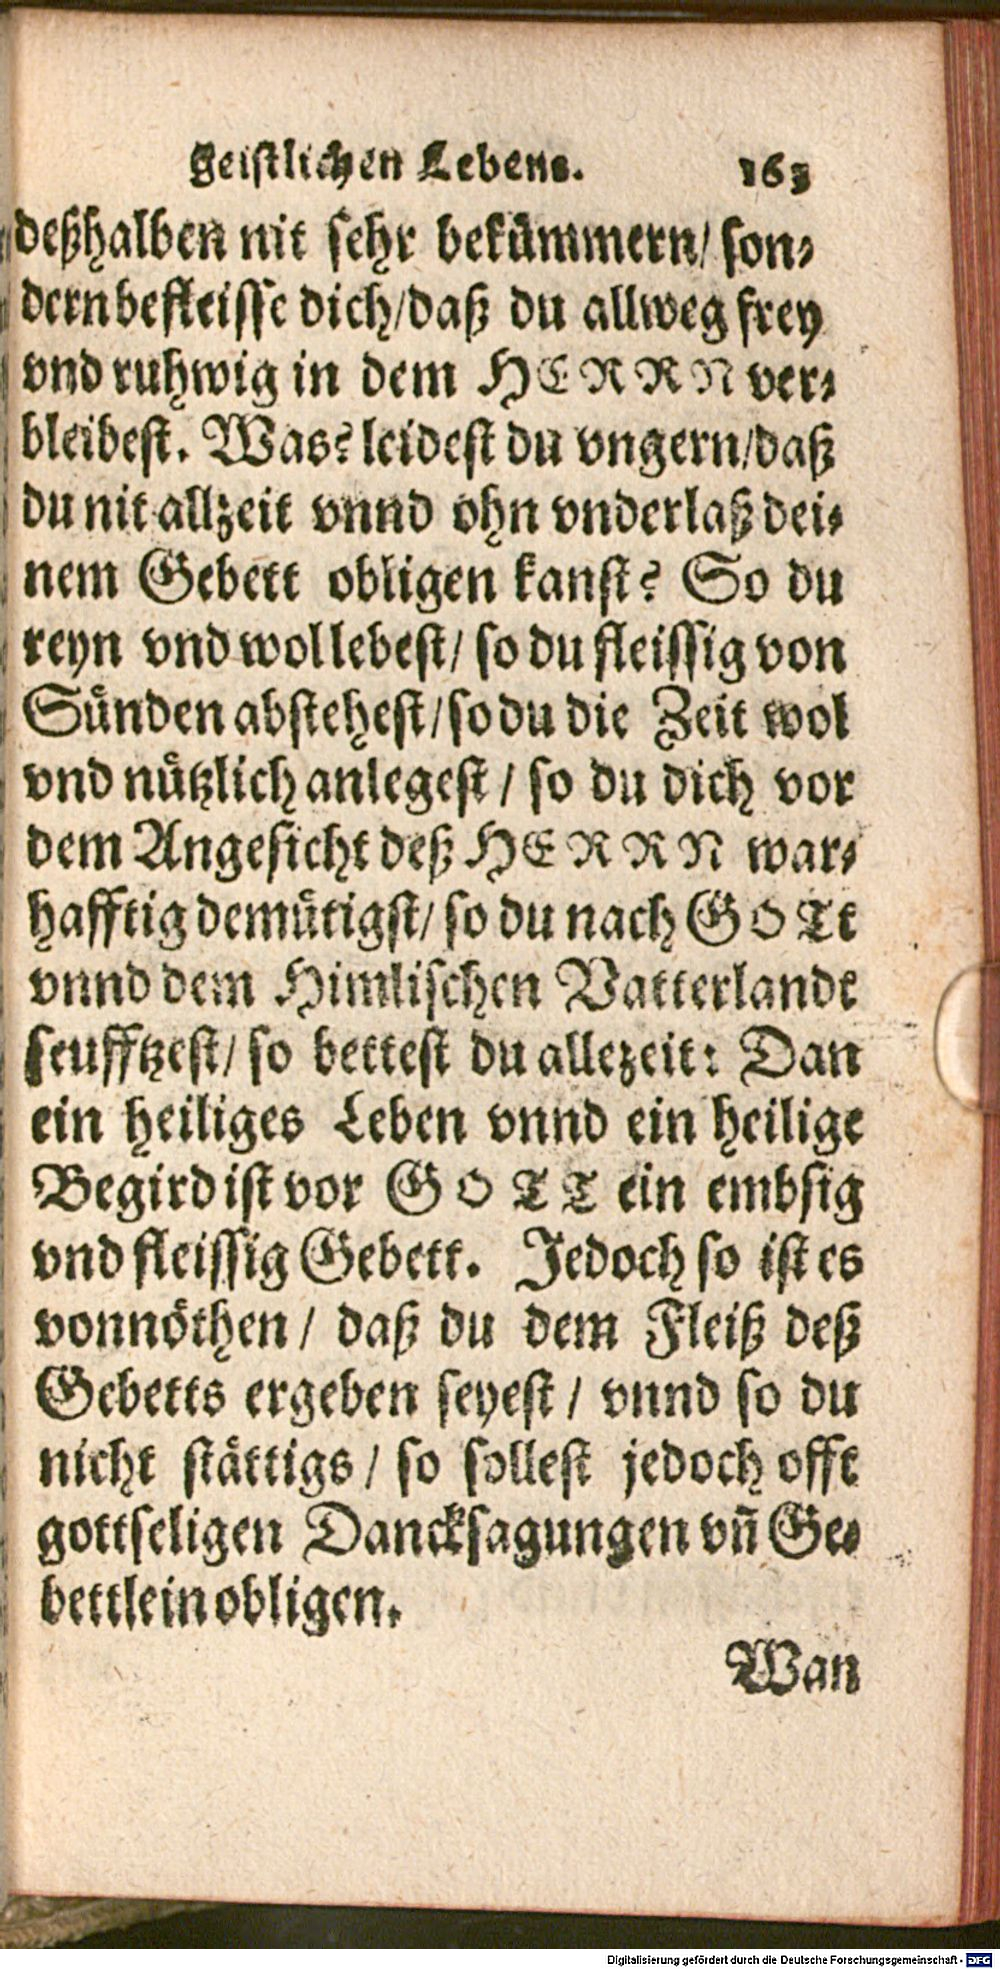 geistlichen Lebens. 163
deßhalben nit sehr bekümmern/ son-
dern befleisse dich/ daß du allweg frey
vnd ruhwig in dem HERRN ver-
bleibest. Was? leidest du vngern/ daß
du nit allzeit vnnd ohn vnderlaß dei-
nem Gebett obligen kanst? So du
reyn vnd wol lebest/ so du fleissig von
Sünden abstehest/ so du die Zeit wol
vnd nützlich anlegest / so du dich vor
dem Angesicht deß HERRN war-
hafftig demütigst/ so du nach GOTt
vnnd dem Himlischen Vatterlandt
seufftzest/ so bettest du allezeit: Dan
ein heiliges Leben vnnd ein heilige
Begird ist vor GOTT ein embsig
vnd fleissig Gebett. Jedoch so ist es
vonnöthen / daß du dem Fleiß deß
Gebetts ergeben seyest / vnnd so du
nicht stättigs / so sollest jedoch offt
gottseligen Dancksagungen vn̄ Ge-
bettlein obligen.
Wan
Digitalisierung gefördert durch die Deutsche Forschungsgemeinschaft - DFG